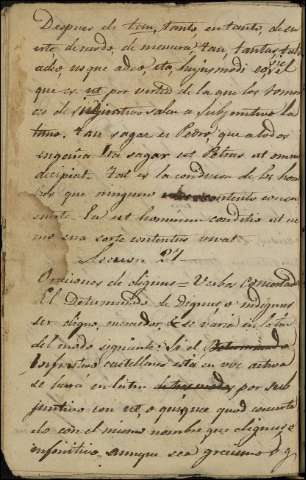 Despues de tam, tanto, en tanto, de su
erte, de modo, de manera, tan, tantus tali
adeo, usque adeo, ita, hujusmodi es, el
que es ut por verbo de la que los roman
ces de subjuntivo salen a subjuntivo la
tino. Tan sagaz es Pedro, que a todos
engaña. Ita sagax est Petrus ut omnes
decipiat. Tal es la condicion de los hom
bres que ninguno contento con su
suerte. Ea est hominum conditio ut ne
mo sua sorte contentus vivat.
Leccion 21
Oraciones de dignus = Verbos
El determinado de dignus o indignus
ser digno, merecedor, & se varia en latin
del modo siguiente. Si el
infinitivo castellano está en voz activa
se hara en latin por sub
juntivo con ut, o qui quae quod concerta
do con el mismo nombre que dignus, e
infinitivo, aunque sea grecismo v. g.